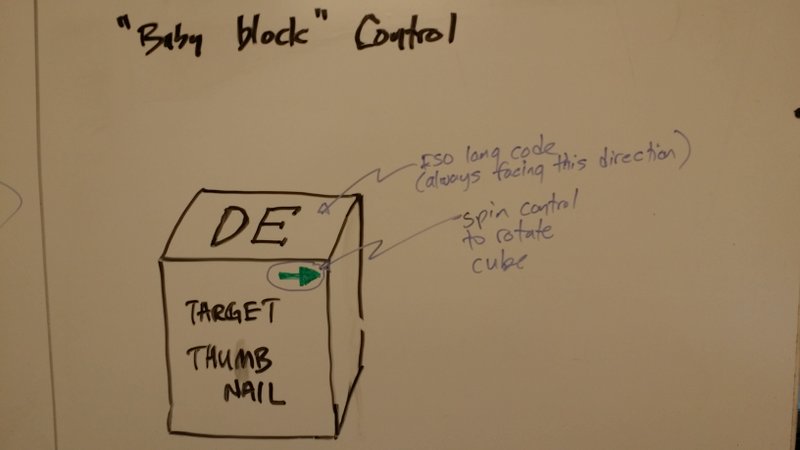 "Baby block" Control
ISO lang code
(always facing this direction)
DE
spin control
to rotate
cube
TARGET
THUMB
NAIL